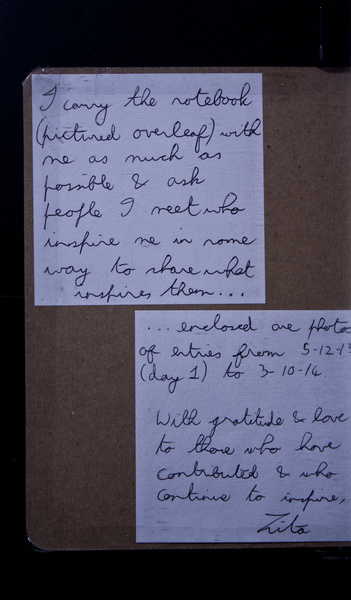 I carry the notebook
(pictured overleaf) with
me as much as
possible & ask
people I meet who
inspire me in some
way to share what
inspires them...
...enclosed are photos
of entries from 5-12-13
(day 1) to 3-10-14
With gratitude & love
to those who have
contributed & who
continue to inspire,
Zita